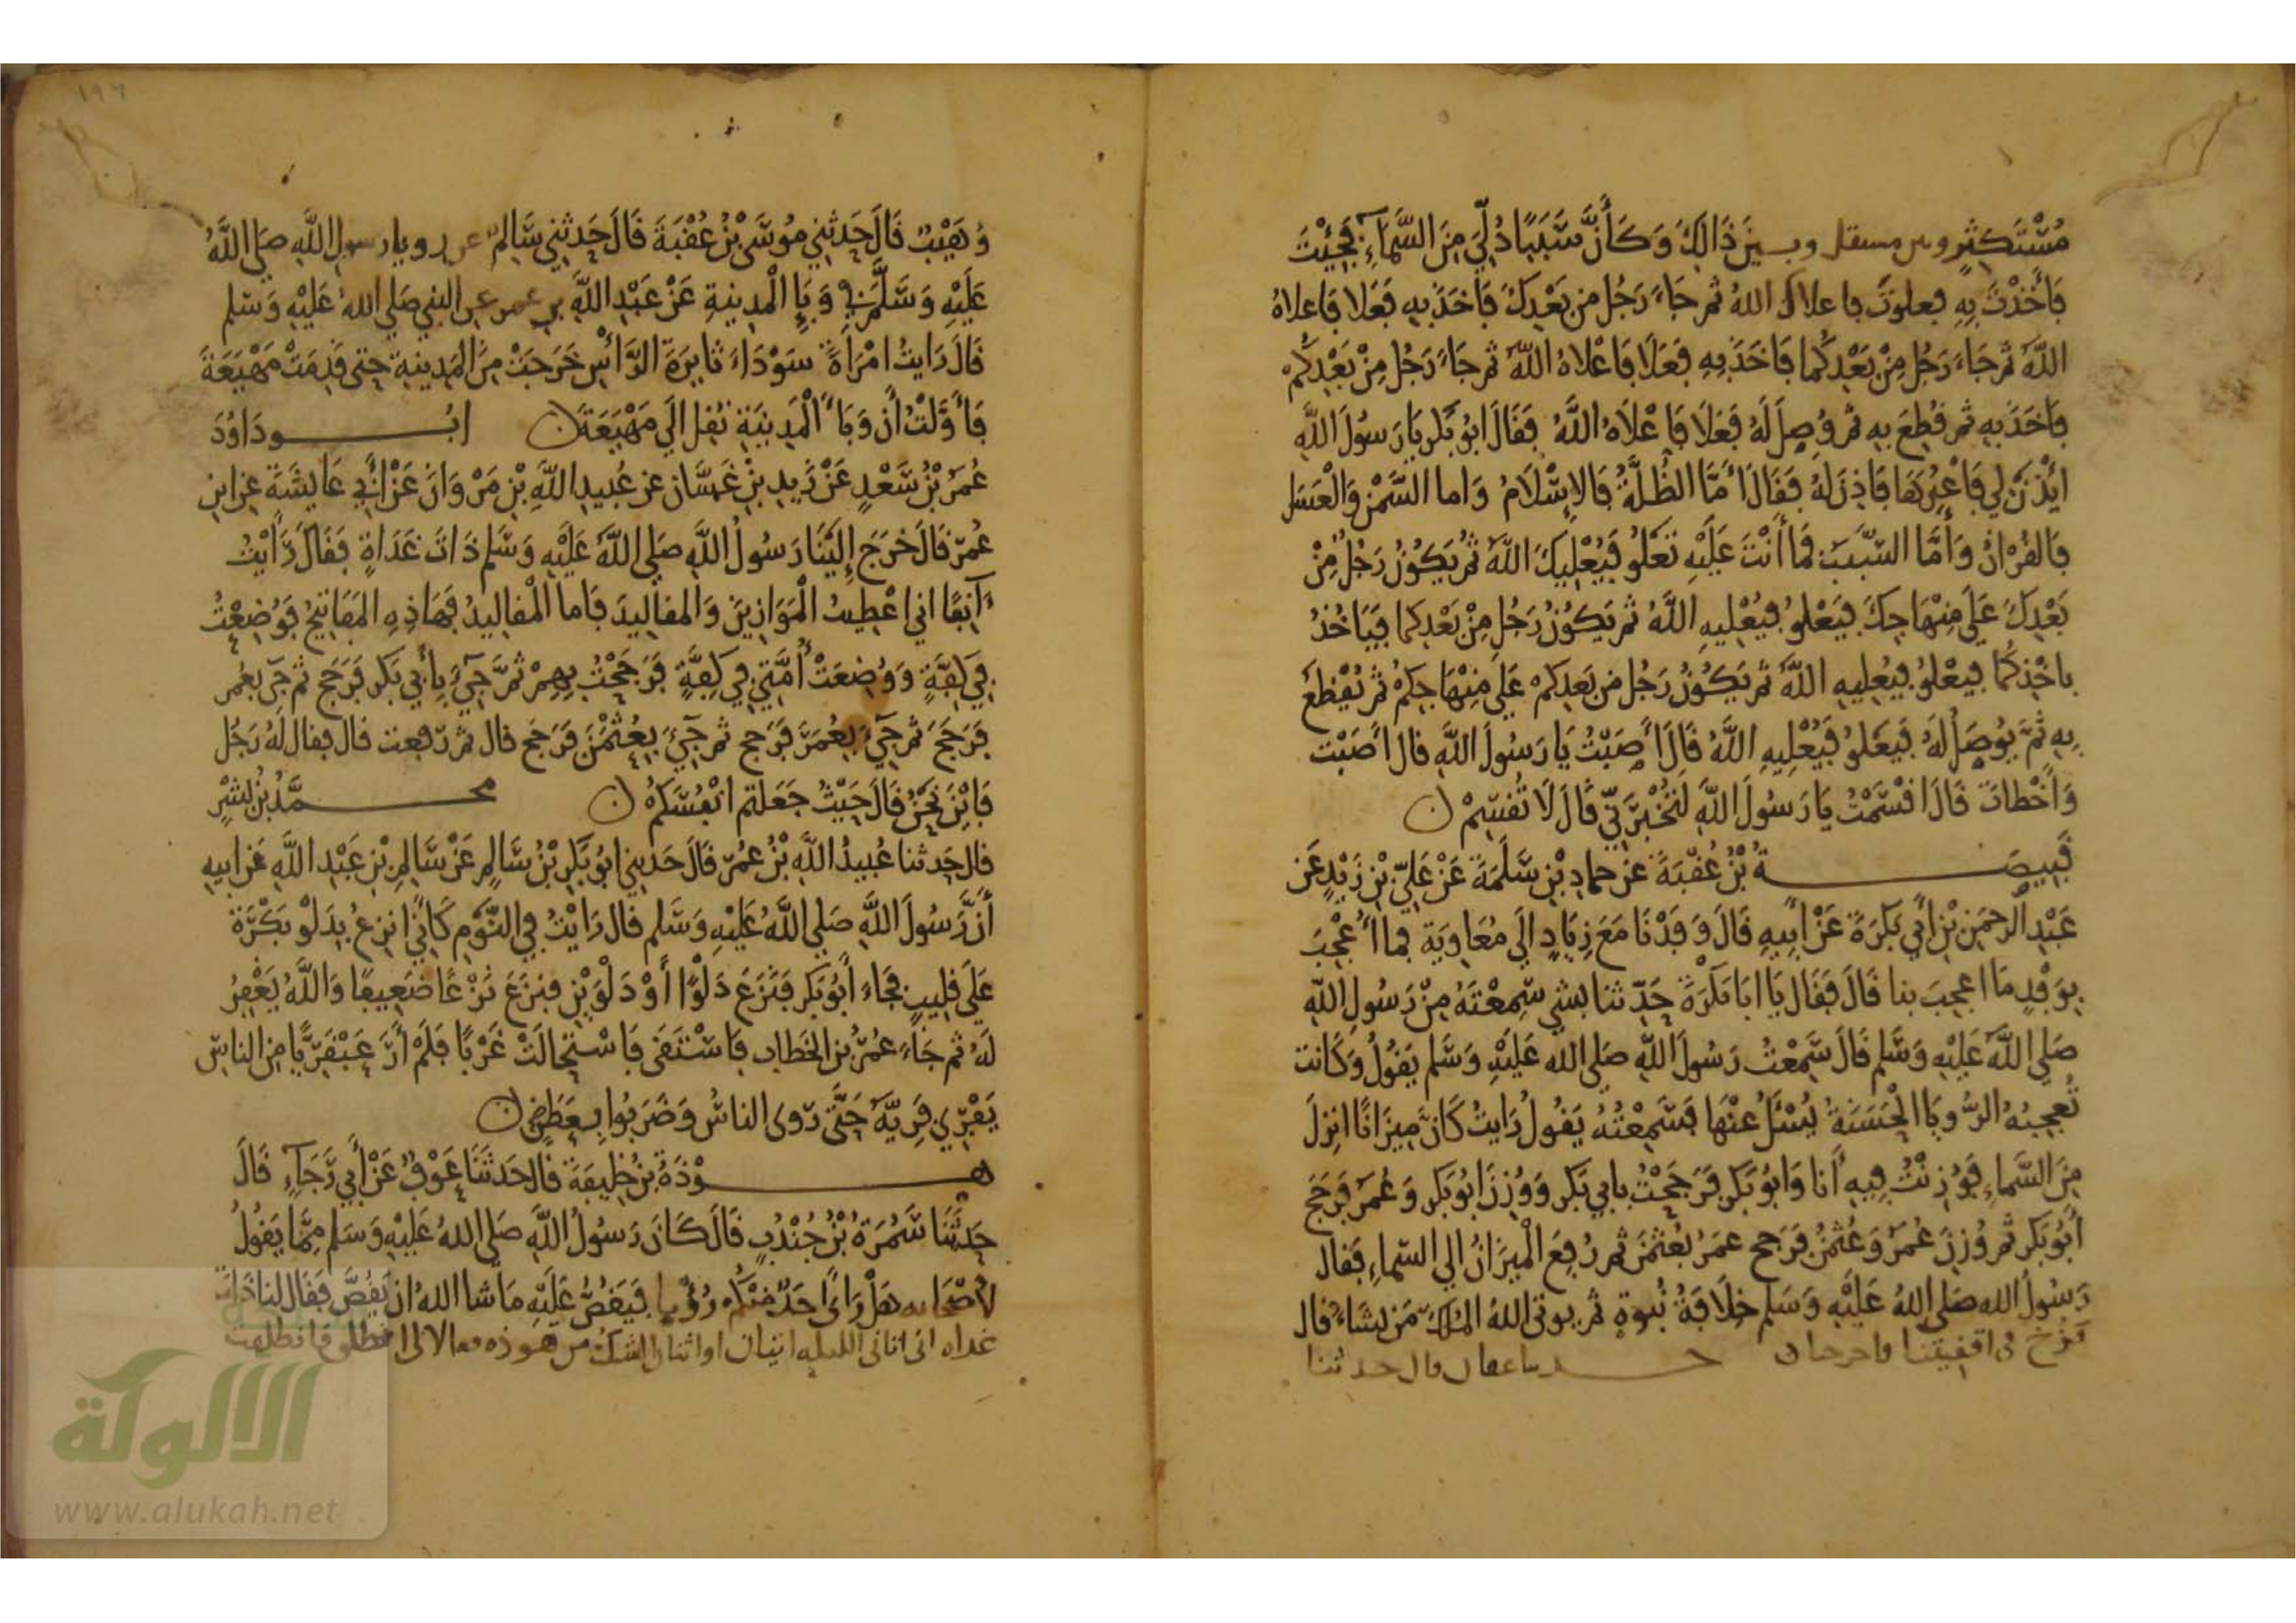 مُسْتَكثِرٍ وبين مستقل وبين ذَالِكَ وَكَأَنَّ سَبَبًا دُلِّيَ مِنَ السَّمَاءِ فَجِئْتَ
فَأَخَذْتَ بِهِ فعلوتَ فاعلاك اللهُ ثم جَاءَ رَجُل من بَعْدِكَ فَاخَذ به فَعَلا فَاعلاهُ
اللَّهُ ثم جَاءَ رَجُل مِنْ بَعْدِكُما فَاخَذ بِهِ فَعَلَا فَاعْلاهُ اللَّهُ ثم جَاءَ رَجُل مِنْ بَعْدِكُم
فَاخَذَ به ثم قُطِعَ به ثم وُصِلَ لَهُ فَعَلَا فَاعْلَاهُ اللَّهُ فَقَالَ ابُو بَكر يَا رَسُولَ اللَّهِ
ايْذَنْ لِي فَاعْبُرَهَا فَاذِنَ لَهُ فَقَالَ أَمَّا الظُّلَّةُ فَالإِسْلَامُ وَاما السَّمْن وَالْعَسَل
فَالقُرْانُ وَأَمَّا السَّبَبُ فمَا أَنْتَ عَلَيْهِ تَعْلُو فَيُعْلِيكَ اللَّهُ ثم يَكُونُ رَجُلٌ مِنْ
بَعْدِكَ عَلَى مِنْهَاجِكَ فَيَعْلُو فيُعْلِيهِ اللَّهُ ثم يَكُونُ رَجُل مِنْ بَعْدِكما فيَاخُذُ
باخْذِكُما فيعْلُو فيُعليهِ اللَّهُ ثم يَكُونُ رَجُل من بَعدِكم عَلَى مِنْهَاجِكمْ ثم يُقْطَعُ
بِهِ ثُمَّ يُوصَلُ لَهُ فَيَعْلُو فَيُعْلِيهِ اللَّهُ قَالَ أَصَبْتُ يَا رَسُولَ اللَّهِ قال أَصَبْتَ
وَأَخْطاتَ قَالَ اقْسَمْتُ يَا رَسُولَ اللَّهِ لَتُخْبِرَنِّي قَالَ لَا تُقسِمْ ن
قَبِيصَةُ بْنُ عُقْبَةَ عَن حماد بْنِ سَلَمَةَ عَنْ عَلِيّ بْنِ زَيْدٍ عَن
عَبْدِ الرَّحمَن بْنِ أَبِي بَكرَةَ عَنْ أَبِيهِ قَالَ وَفَدْنَا مَعَ زِيَادٍ إِلَى مُعَاوِيَةَ فما أُعْجِبَ
بوَفْدٍ مَا اعجِبَ بنا قَالَ فَقَالَ يَا ابَا بَكْرَةَ حَدّثنا بشي سَمِعْتَهُ مِنْ رَسُولِ اللَّهِ
صَلى اللَّهُ عَلَيْهِ وَسَلم قَالَ سَمِعْتُ رَسُولَ اللَّهِ صَلى الله عَلَيْهِ وَسَلم يَقُولُ وَكَانت
تُعجِبُهُ الرُّويَا الْحَسَنَةُ يُسْئَلُ عَنْهَا فَسَمِعْتُهُ يَقُولُ رَايتُ كَانَّ مِيزَانًا انزِلَ
مِنَ السَّمَاءِ فَوُزِنْتُ فِيهِ أَنَا وَابُو بَكر فَرَجَحْتُ بابي بَكر وَوُزِنَ ابُو بَكر وَعُمَرُ فَرَجَحَ
أَبُو بَكر ثم وُزِنَ عُمَرُ وَعُثمَنُ فَرَجح عمَرُ بعُثمَنَ ثم رُفِعَ الْمِيزَانُ الى السّماءِ فَقال
رَسُولُ الله صَلى اللهُ عَلَيْهِ وَسَلم خِلَافَةُ نُبُوةٍ ثم يوتى اللهُ الملكَ مَن يشَاءُ قال
فزُخَّ في اقفيتنا فاخرجنا ن حدثنا عفان قال حدثنا
وُهَيْبٌ قَالَ حَدثني مُوسَى بْنُ عُقْبَةَ قَالَ حَدثني سَالِمٌ عن رويا رسول اللَّهِ صَلى اللَّهُ
عَلَيْهِ وَسَلَّمَ في وَبَاءِ الْمدِينةِ عَنْ عَبْدِ اللَّهِ بن عمر عن النبي صَلى اللهُ عَلَيْهِ وَسَلم
قَالَ رَايتُ امْرَاةً سَوْدَاءَ ثَايِرَةَ الرَّأْسِ خَرَجَتْ مِنَ المَدِينة حتى قَدِمَتْ مَهْيَعَةَ
فَأَوَّلْتُ أَن وَبَاءَ الْمَدِينَةِ نُقِل الَى مَهْيَعَةَ ن ابُو دَاوُدَ
عُمَرُ بْنُ سَعْدٍ عَنْ زَيدِ بْنِ غَسَّان عن عُبيدِ اللَّهِ بْنِ مَرْوَانَ عَنْ أَبِي عَايشَةَ عَنِ ابنِ
عُمَرَ قَالَ خَرَجَ إِلَيْنَا رَسُولُ اللَّهِ صَلى اللَّهُ عَلَيْهِ وَسَلم ذَاتَ غَدَاةٍ فَقَالَ رَأَيْتُ
آنِفًا اني اعْطِيتُ الْمَوَازِينَ وَالمقاليدَ فَاما الْمقاليدُ فهَاذِهِ المَفَاتِيحُ فَوُضِعْتُ
في كِفَّةٍ وَوُضِعَتْ أُمَّتِي فِي كِفَّةٍ فَرَجَحْتُ بِهِمْ ثمَّ جِيءَ بِأَبِي بَكر فَرَجَحَ ثم جِيَ بعُمر
فَرَجَحَ ثم جِيَ بعُمَرَ فَرَجح ثم جِيَ بعُثمْنَ فَرَجح قال ثم رفعت قال فقال لَهُ رَجُل
فَايْنَ نَحْنُ قَالَ حَيْثُ جَعَلتم انْفُسَكمُ ن محمَّدُ بْنُ بِشْرٍ
قال حَدثنا عُبيدُ اللَّهِ بْنُ عُمَرَ قَالَ حَدثني ابُو بَكر بْنُ سَالم عَنْ سَالمِ بْنِ عَبْدِ اللَّهِ عَن ابيهِ
أَنَّ رَسُولَ اللَّهِ صَلى اللَّهُ عَلَيْهِ وَسَلم قال رَايْتُ في النَّوْمِ كَانّي انزِعُ بِدَلْوِ بَكْرَةٍ
عَلَى قَلِيبٍ فجَاءَ أَبُو بَكر فَنَزَعَ دَلْوًا أَوْ دَلْوَيْنِ فنزَعَ نَزْعًا ضَعِيفًا وَاللَّهُ يَغْفِرُ
لَهُ ثم جَاءَ عُمَرُ بن الخَطاب فَاسْتَقَى فَاسْتحالَتْ غَرْبًا فَلَمْ أَرَ عَبْقَرِيًّا مِنَ الناسِ
يَفْرِي فَرِيَّهُ حَتَّى رَوِىَ الناسُ وَضَرَبُوا بِعَطَنٍ ن
هوْذَةُ بْنُ خَلِيفَةَ قَال حَدثَنَا عَوْفٌ عَنْ أَبِي رَجَاءٍ قَالَ
حَدثَنَا سَمُرَةُ بْنُ جُنْدُبٍ قَالَ كَانَ رَسُولُ اللَّهِ صَلى اللهُ عَلَيْهِ وَسَلم مِمَّا يَقُولُ
لاصْحَابه هَلْ رَاى احَدٌ مِنْكُم رُؤْيا فَيَقُصُّ عَلَيْهِ مَا شا اللهُ ان يَقُصَّ فَقَال لنا ذَاتَ
غداه انى اتانى الليله اتيان او اثنان الشك من هوذه فقالا لى انطلق فانطلقت
١٩٦
الألوكة
www.alukah.net